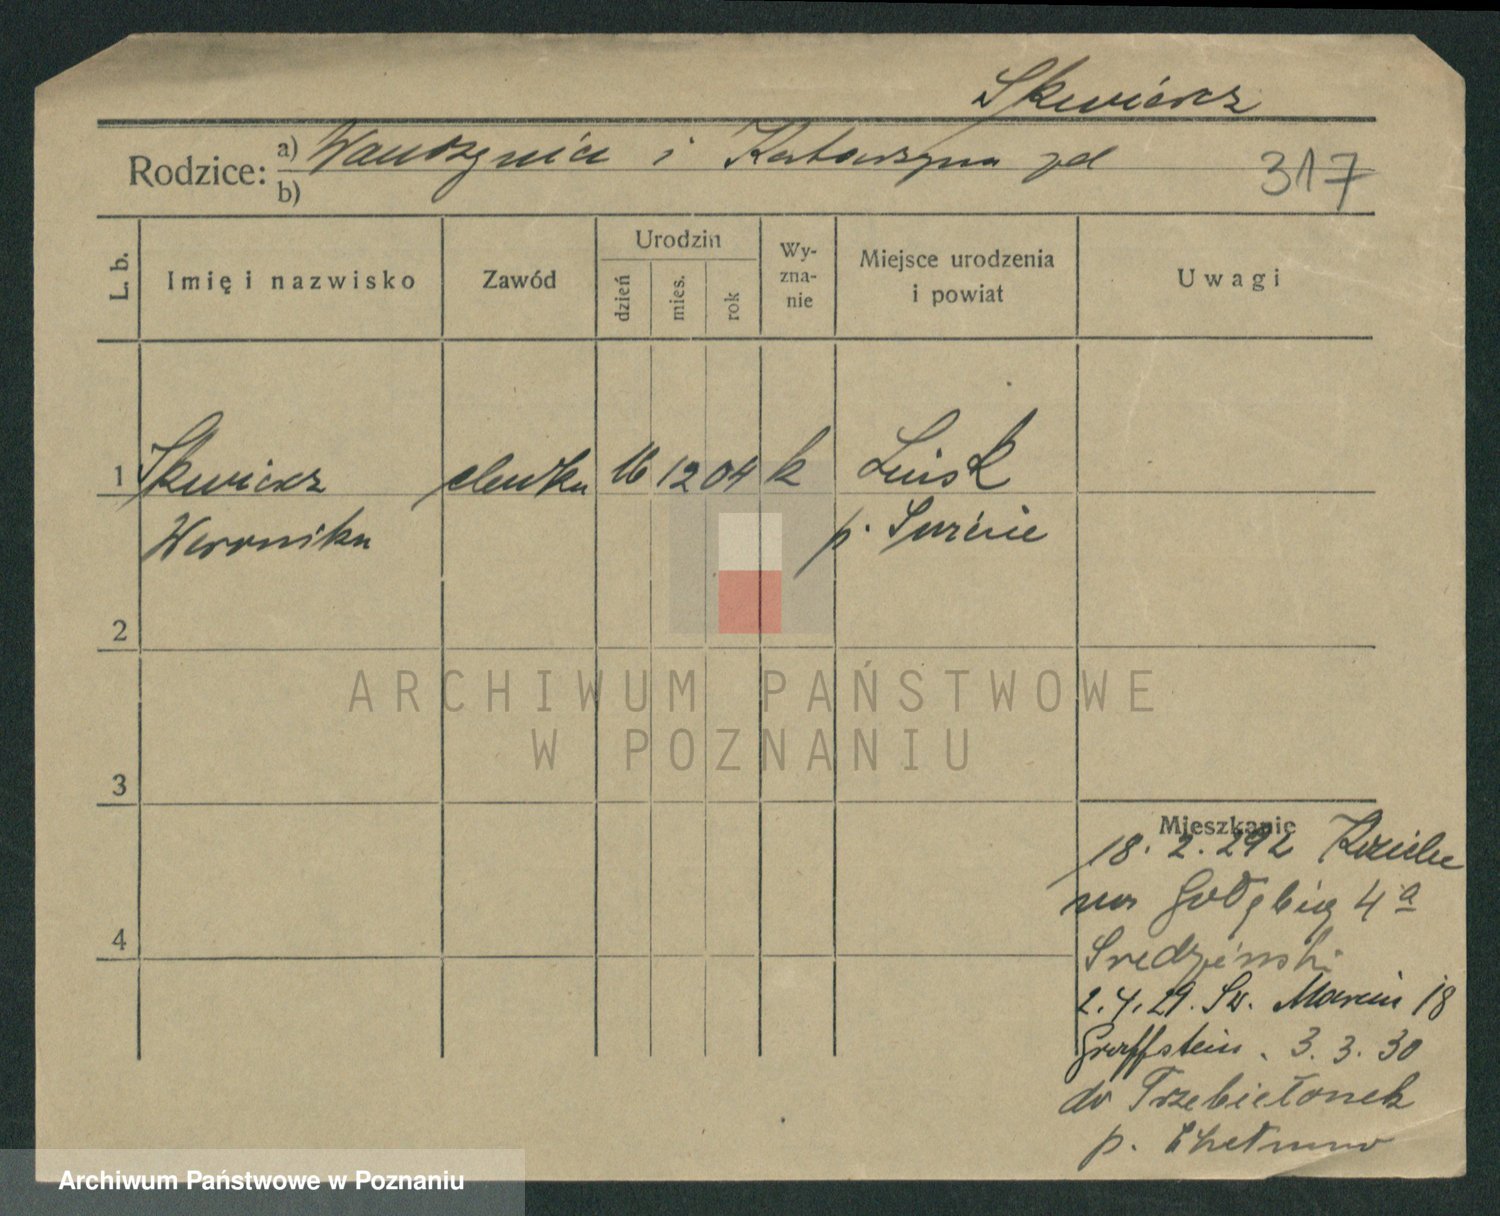 Skwiercz
Rodzice: a) Wawrzyniec i Katarzyna zd
b)
317
L. b.
Imię i nazwisko
Zawód
Urodzin
dzień
mies.
rok
Wy-
zna-
nie
Miejsce urodzenia
i powiat
Uwagi
1 Skwiercz 16 12 04 k Lińsk
Weronika p. Świecie
2
ARCHIWUM PAŃSTWOWE
W POZNANIU
3
4
Mieszkanie
18. 2. 292
Gołębia 4a
Sredziński
2. 4. 29. Św. Marcin 18
Graffstein. 3. 3. 30
do Trzebiełonek
p. Chełmno
Archiwum Państwowe w Poznaniu